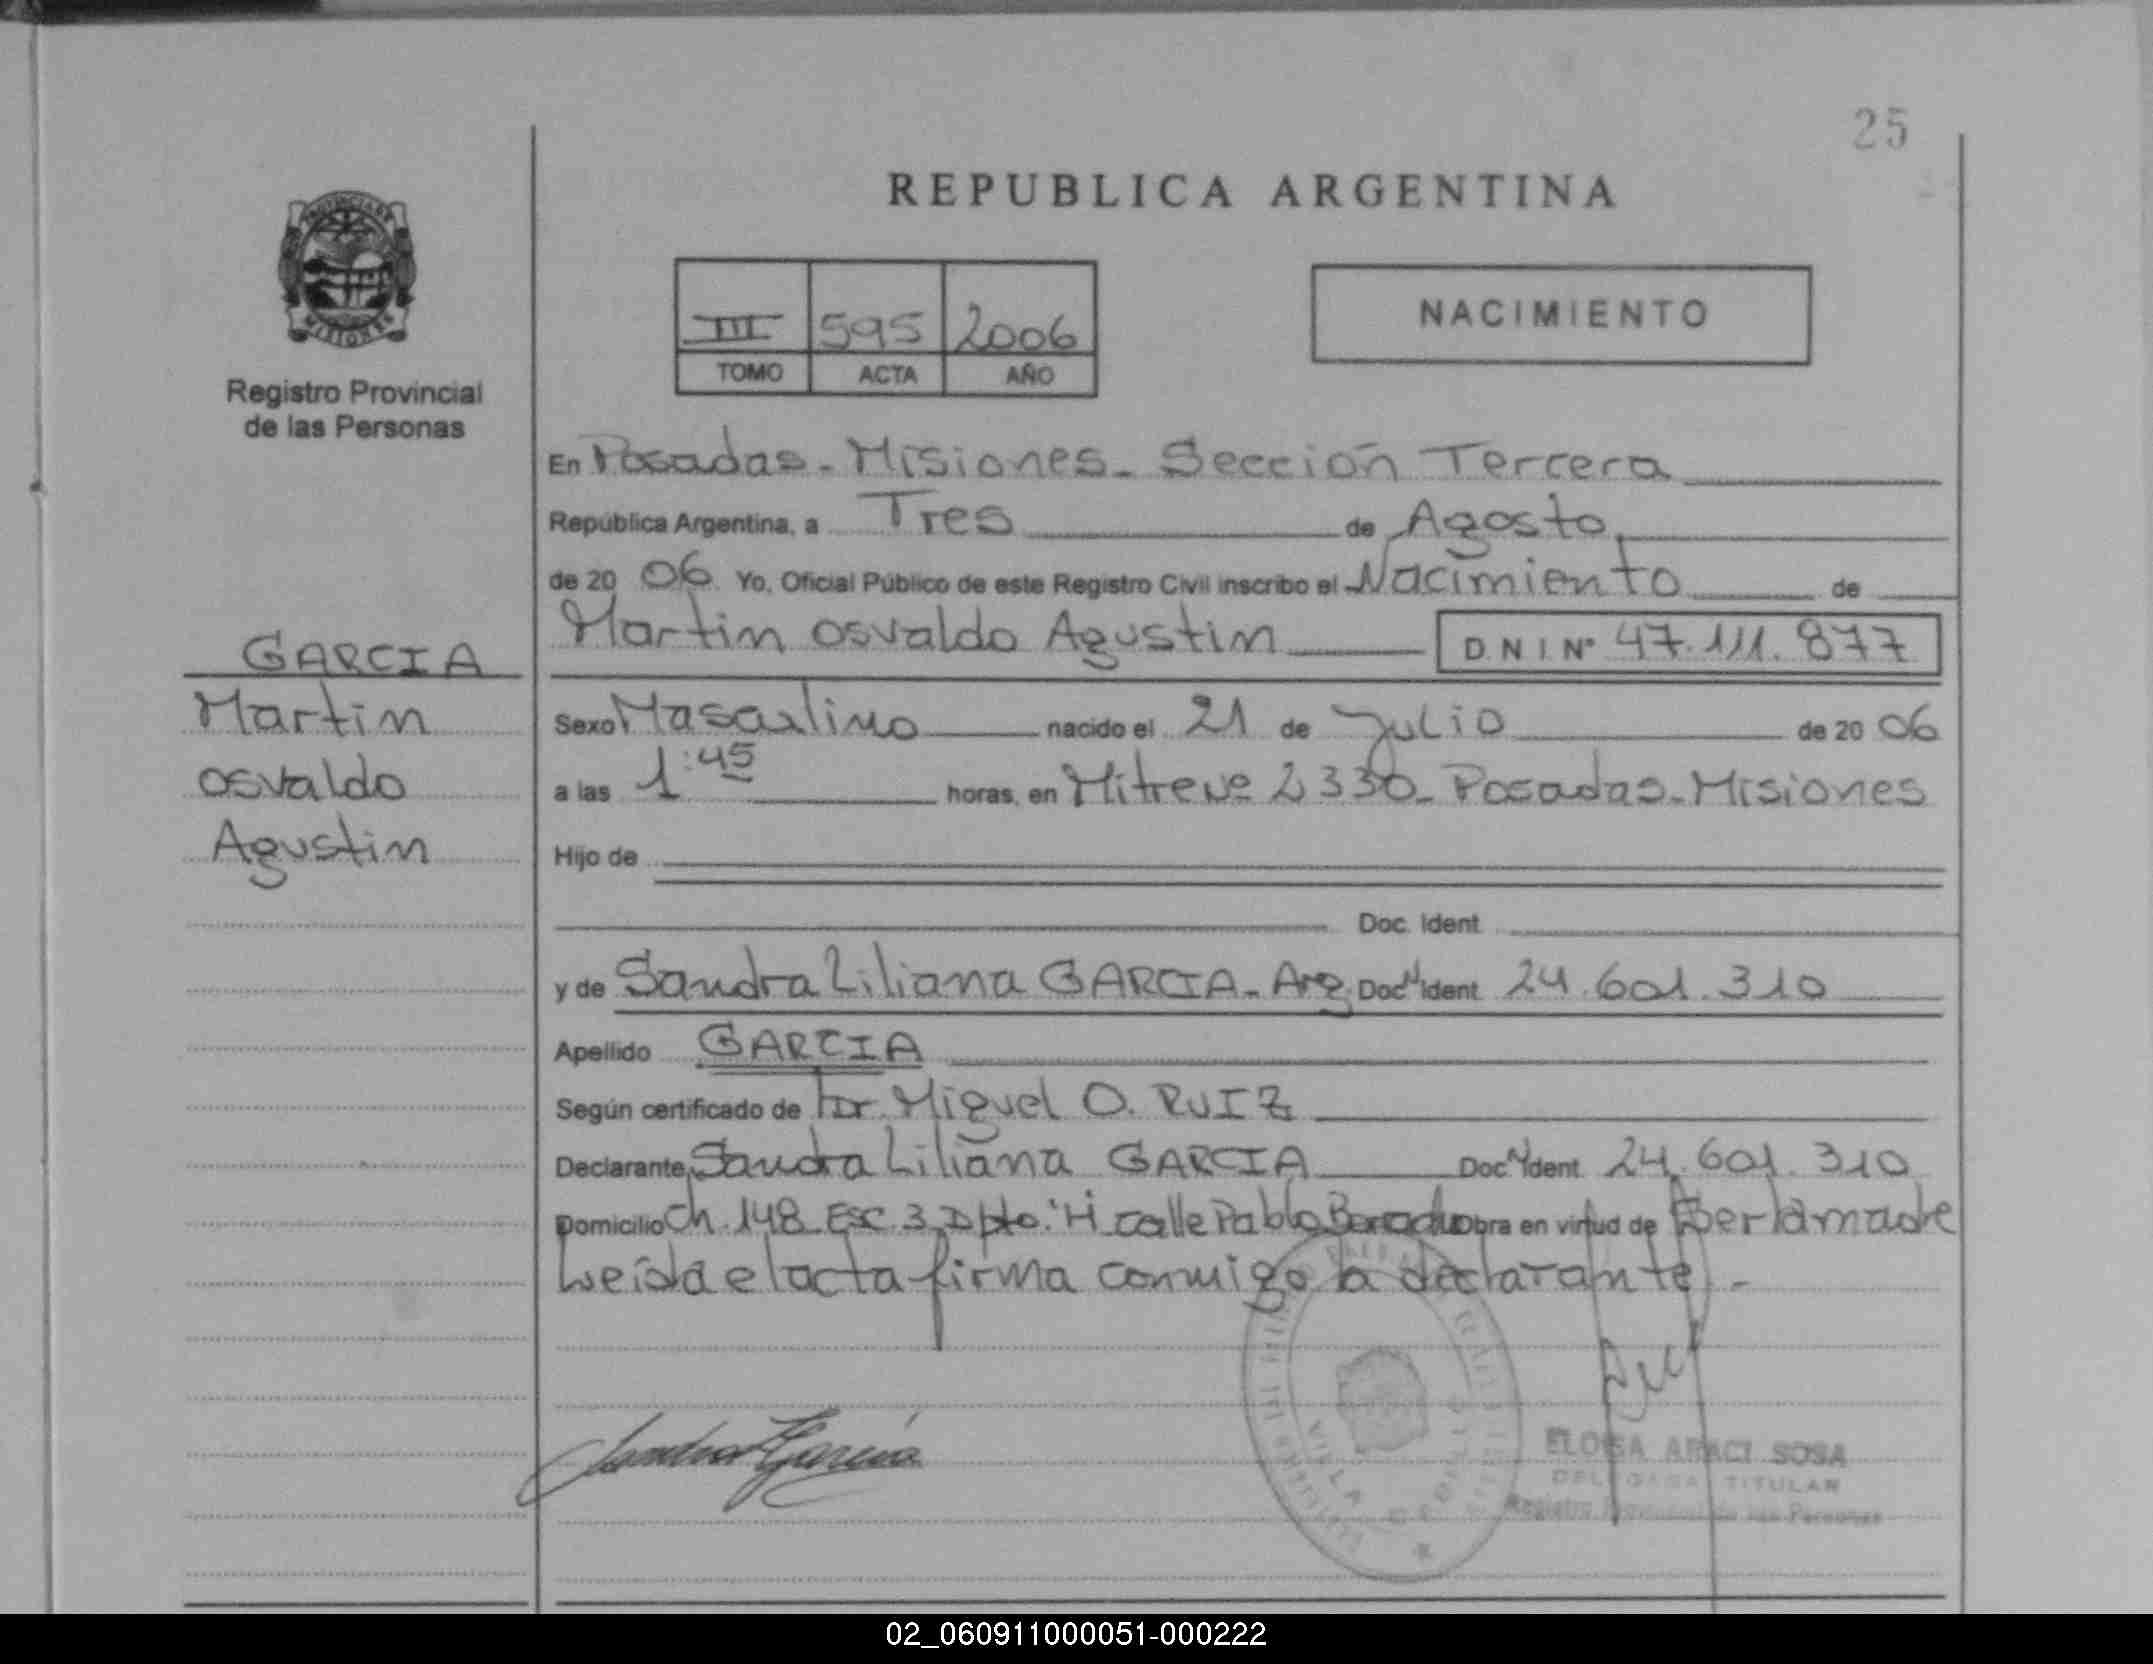 25
REPUBLICA ARGENTINA
PROVINCIA DE
MISIONES
Registro Provincial
de las Personas
III 595 2006
TOMO ACTA AÑO
NACIMIENTO
En Posadas - Misiones - Sección Tercera
República Argentina, a Tres de Agosto
de 2006 Yo, Oficial Público de este Registro Civil inscribo el Nacimiento de
Martin Osvaldo Agustin D.N.I Nº 47.111.877
GARCIA
Martin
Osvaldo
Agustin
Sexo Masculino nacido el 21 de Julio de 2006
a las 1:45 horas, en Mitre Nº 2330 - Posadas - Misiones
Hijo de
Doc. Ident.
y de Sandra Liliana GARCIA - Arg. Doc N Ident 24.601.310
Apellido GARCIA
Según certificado de Dr. Miguel O. RUIZ
Declarante Sandra Liliana GARCIA Doc N Ident. 24.601.310
Domicilio Ch. 148 Esc. 3 Dpto. "H" calle Pablo obra en virtud de Ser la madre
Leída el acta firma conmigo la declarante. -
Sandra García
VILLA
ELOISA ARACI SOSA
DELEGADA TITULAR
Registro Provincial de las Personas
02_060911000051-000222